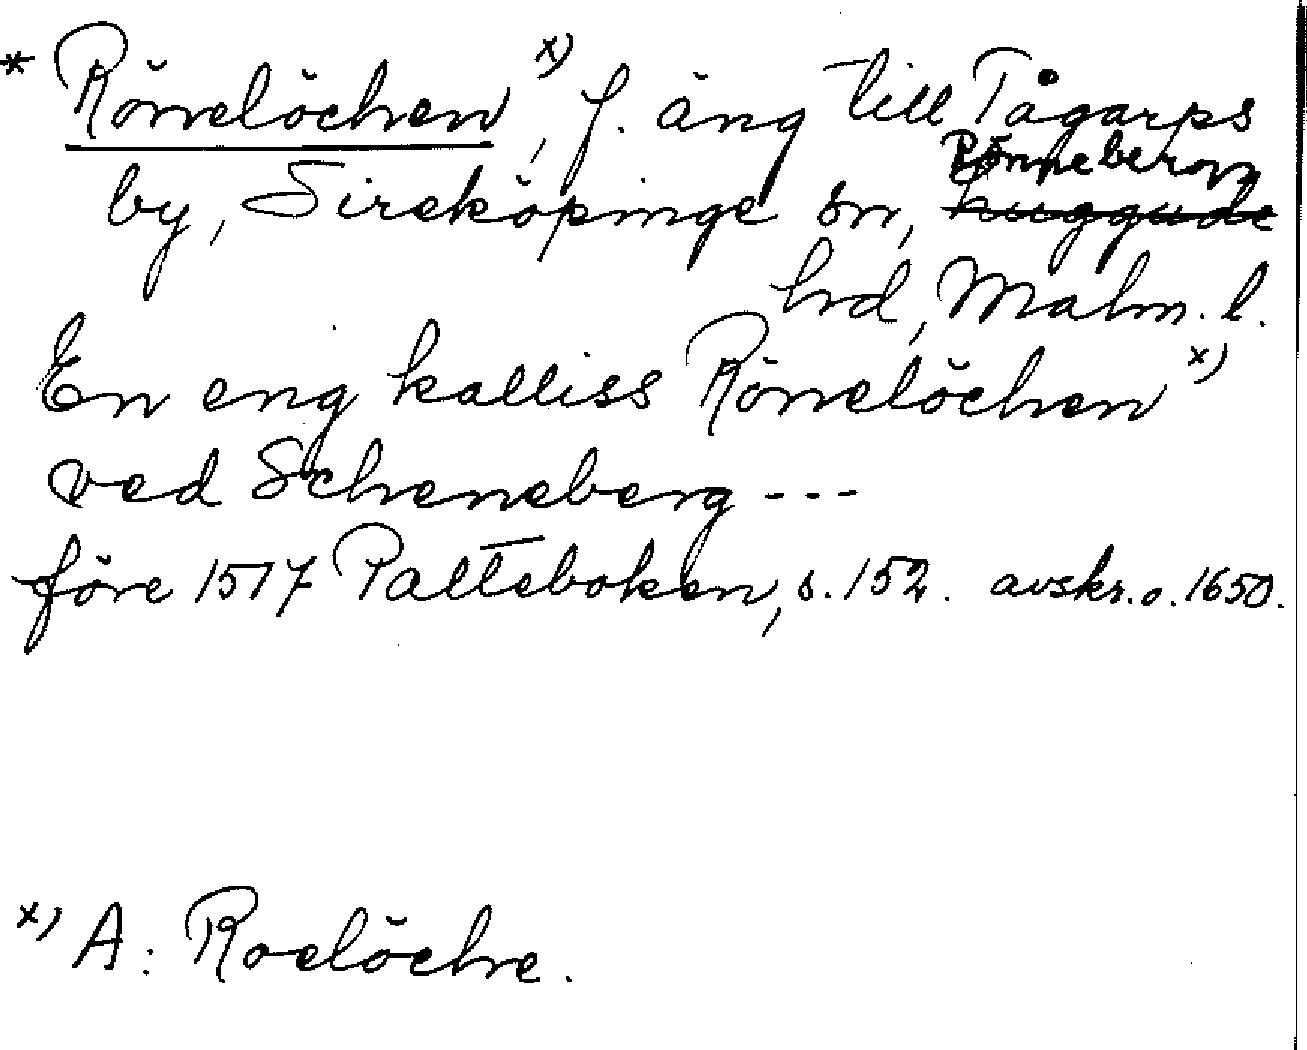 * Rönelöchen x), f. äng till Tågarps
by, Sireköpinge sn, Rönnebergs
luggude
hrd, Malm. l.
En eng kalliss Rönelöchen x)
ved Scheneberg ---
före 1517 Palteboken, s. 152. avskr. o. 1650.
x) A: Roelöche.